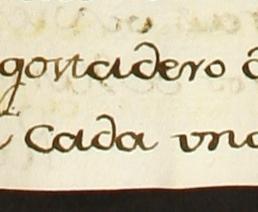 gontadero
cada vno